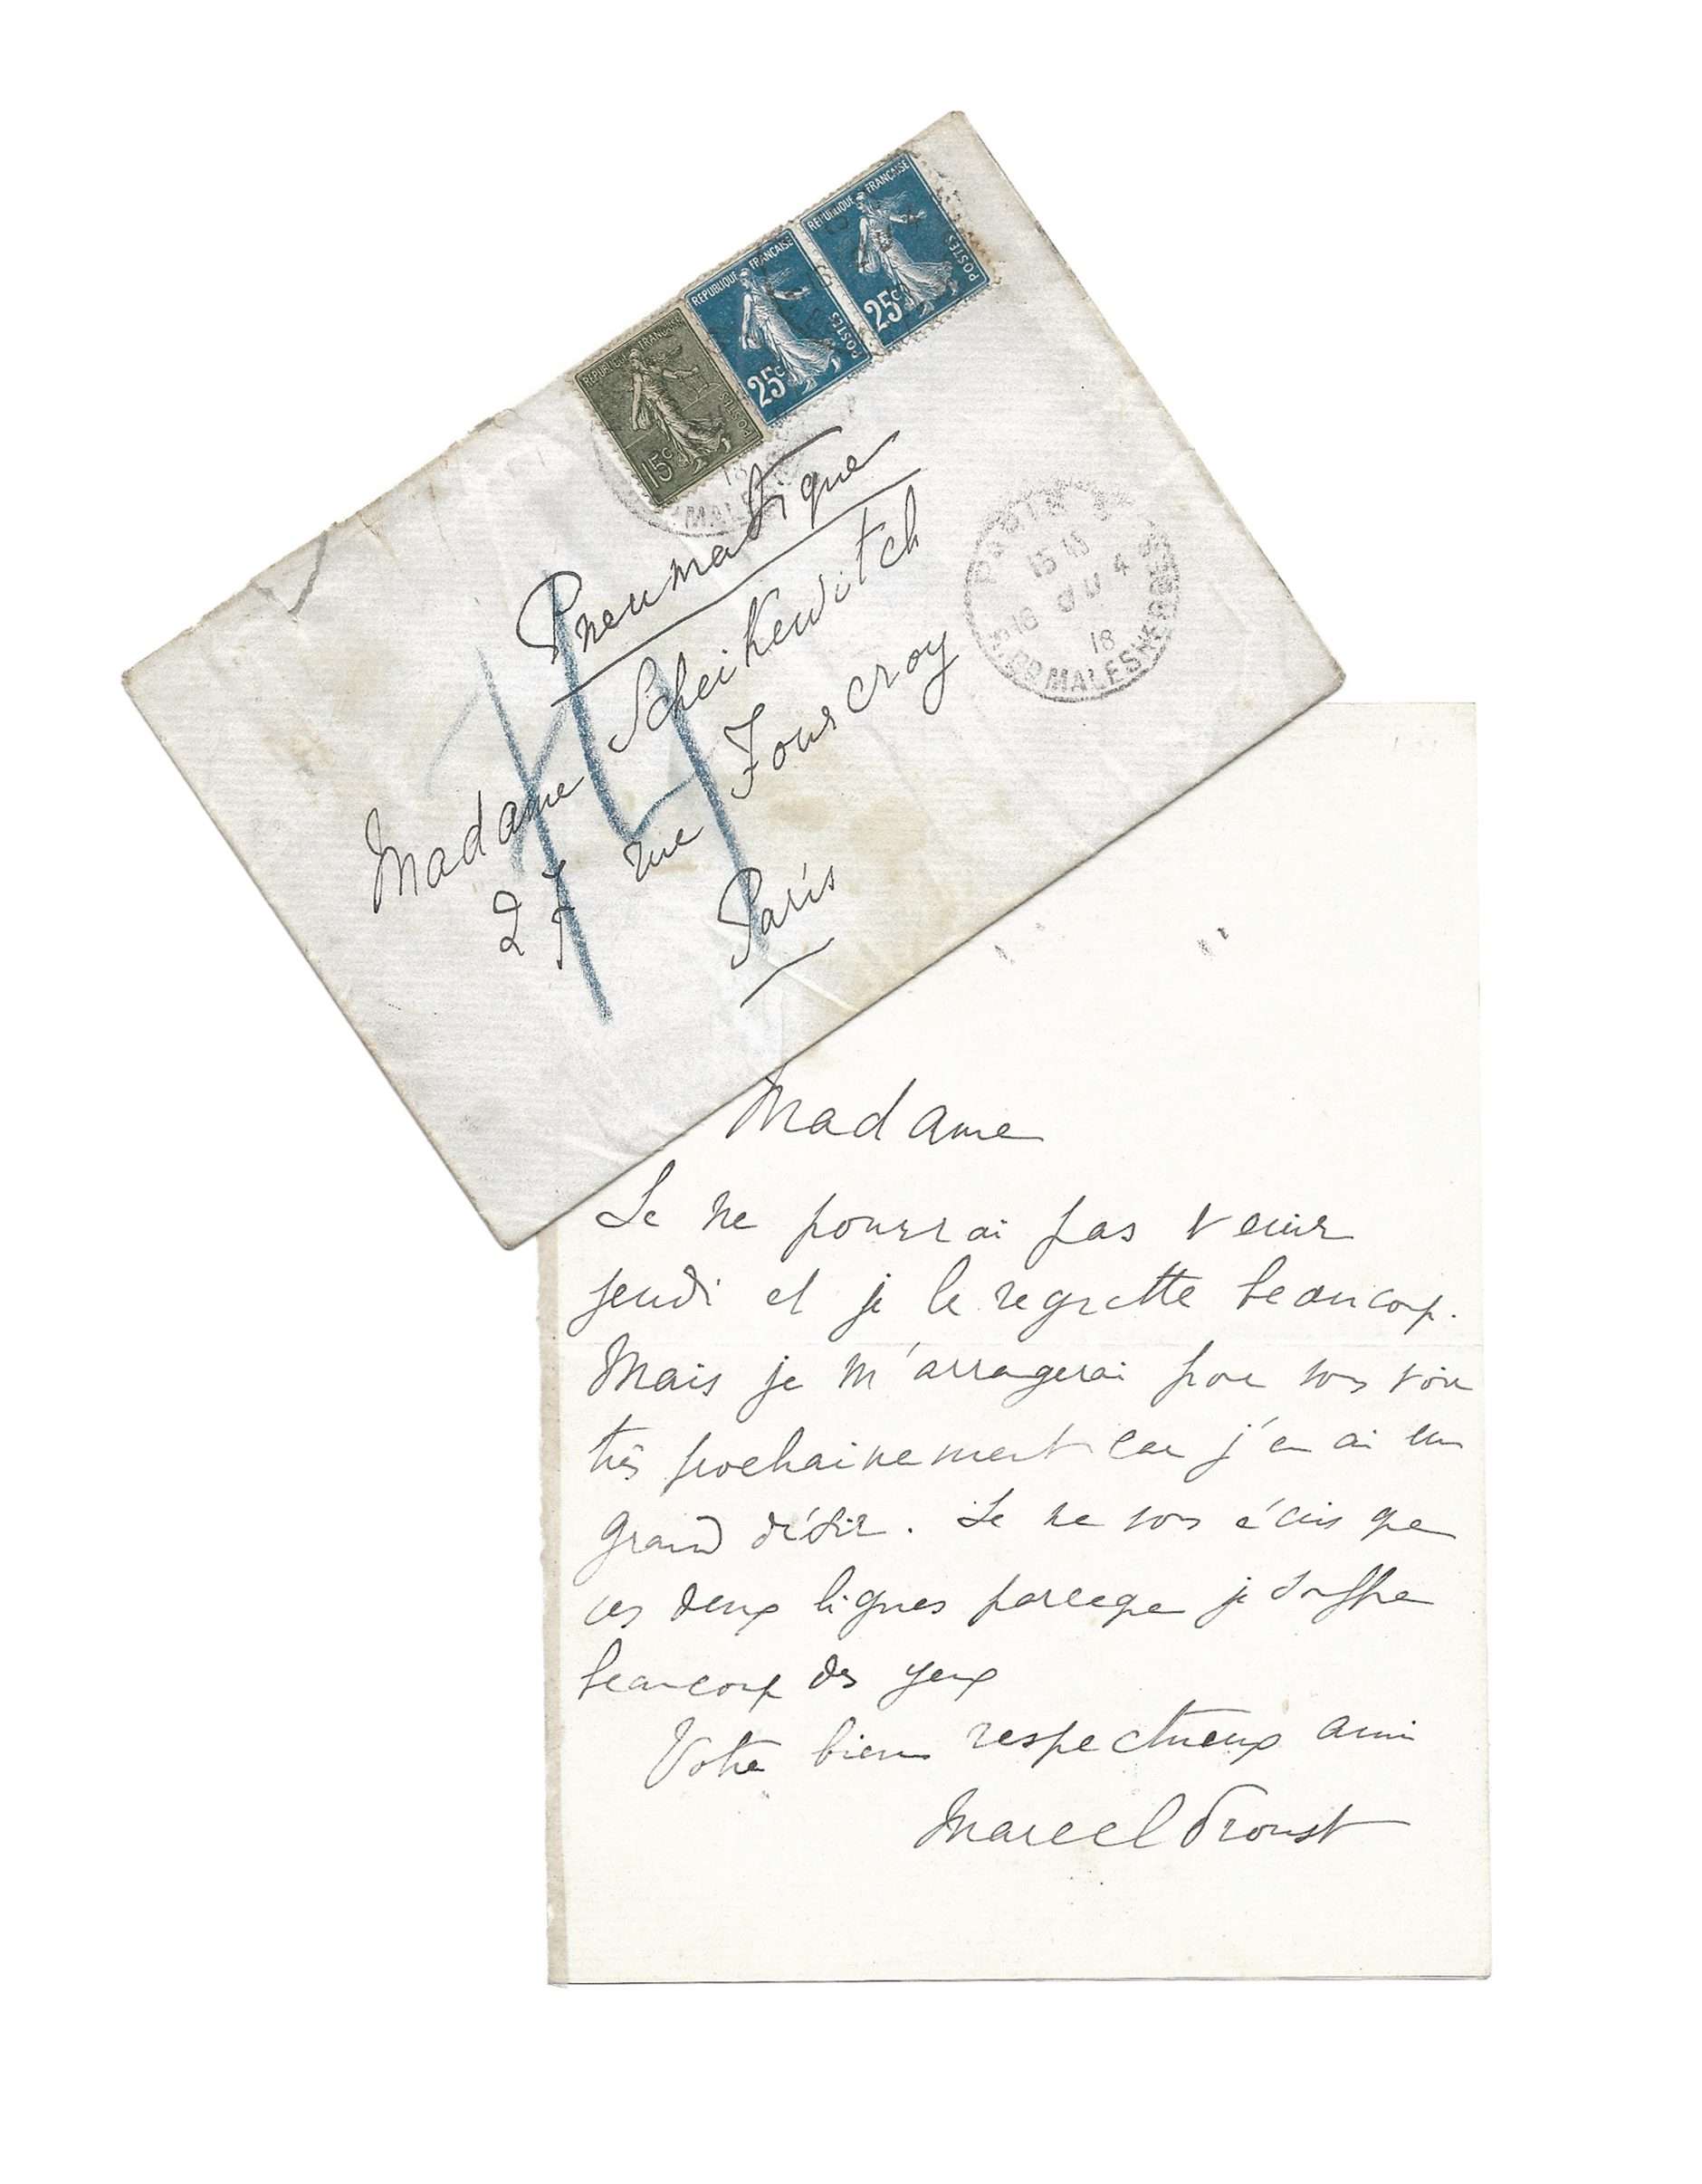 REPUBLIQUE FRANÇAISE
POSTES
25c
REPUBLIQUE FRANÇAISE
POSTES
25c
REPUBLIQUE FRANÇAISE
POSTES
15c
18
MALE
Pneumatique
Madame Scheikewitch
27 rue Fourcroy
Paris
PARIS
15 45
4
18
BD MALESHERBES
Madame
Je ne pourrai pas venir
jeudi et je le regrette beaucoup.
Mais je m'arragerai pour vous voir
très prochainement car j'en ai un
grand désir. Je ne vous écris que
ces deux lignes parceque je souffre
beaucoup des yeux
Votre bien respectueux ami
Marcel Proust